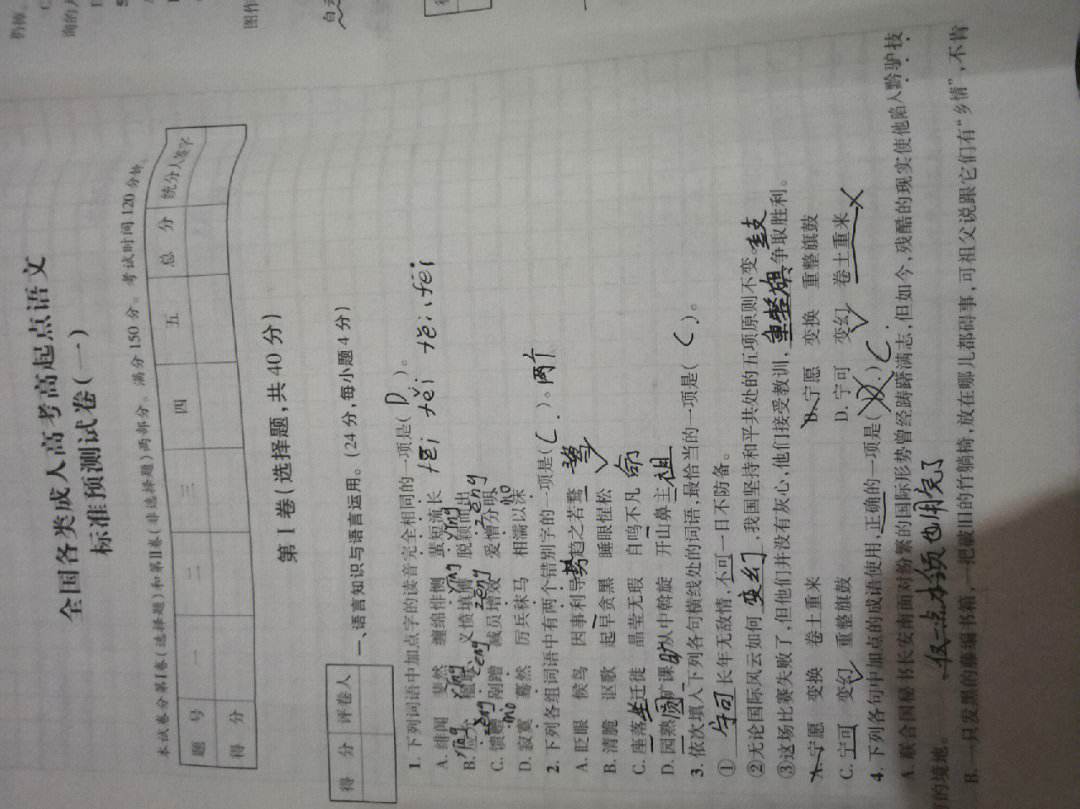 全国各类成人高考高起点语文
标准预测试卷(一)
本试卷分第Ⅰ卷(选择题)和第Ⅱ卷(非选择题)两部分。满分150分。考试时间120分钟。
题 号 一 二 三 四 五 总 分 统分人签字
得 分
第Ⅰ卷(选择题,共40分)
得 分 评卷人
一、语言知识与语言运用。(24分,每小题4分)
1. 下列词语中加点字的读音完全相同的一项是( D )。
A. 绯闻 斐然 缠绵悱恻 蜚短流长 fēi fěi fěi fēi
B. 义愤填膺 脱颖而出
C. 剐蹭 减员增效 爱憎分明
D. 寂寞 蓦然 厉兵秣马 相濡以沫
2. 下列各组词语中有两个错别字的一项是( C )。两个
A. 眨眼 候鸟 因事利导 趋之若鹜 势
B. 清脆 讴歌 起早贪黑 睡眼惺松
C. 座落 迁徙 晶莹无瑕 自鸣不凡 坐 命
D. 圆熟 旷课 从中斡旋 开山鼻主 祖
3. 依次填入下列各句横线处的词语,最恰当的一项是( C )。
① 宁可 长年无敌情,不可一日不防备。
②无论国际风云如何 变幻 ,我国坚持和平共处的五项原则不变。
③这场比赛失败了,但他们并没有灰心,他们接受教训, 重整旗鼓 争取胜利。
A. 宁愿 变换 卷土重来 B. 宁愿 变换 重整旗鼓
C. 宁可 变幻 重整旗鼓 D. 宁可 变幻 卷土重来
4. 下列各句中加点的成语使用,正确的一项是( )C
A. 联合国秘书长安南面对纷繁的国际形势曾经踌躇满志,但如今,残酷的现实使他陷入黔驴技
的境地。 仅一点本领也用完了
B. 一只发黑的藤编书箱,一把破旧的竹躺椅,放在哪儿都碍事,可祖父说跟它们有“乡情”,不肯